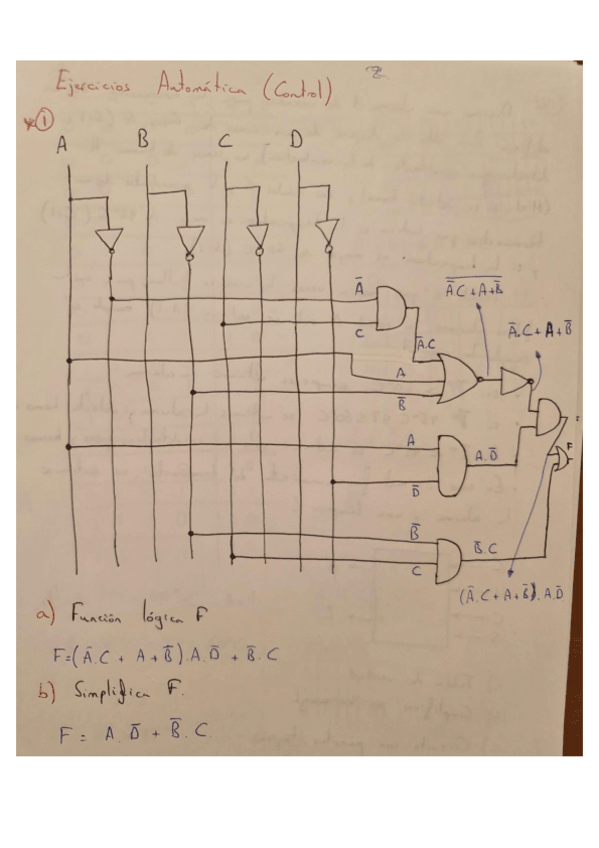 Ejercicios Automática (Control)
①
A B C D
Ā
C
Ā.C
A
B̅
A̅.C + A + B̅ (overline)
Ā.C + A + B̅
A
D̅
A.D̅
F
B̅
C
B̅.C
(Ā.C + A + B̅).A.D̅
a) Función lógica F
F=(Ā.C + A + B̅).A.D̅ + B̅.C
b) Simplifica F.
F = A.D̅ + B̅.C.